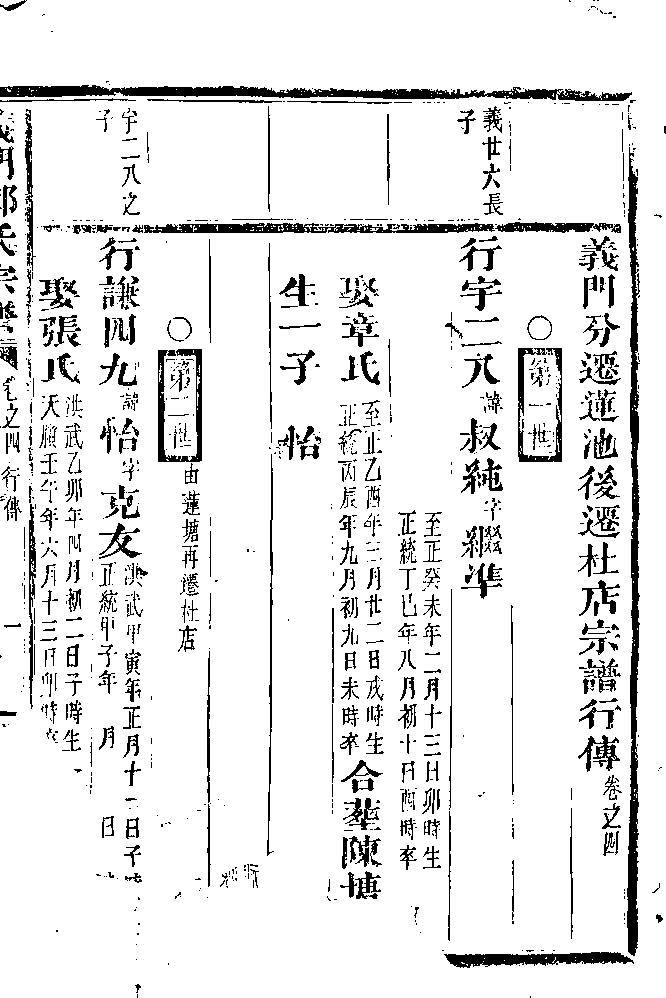 義門分遷蓮池後遷杜店宗譜行傳卷之四
第一世
義廿六長
子
行宇二八諱叔純字綴準
至正癸未年二月十三日卯時生
正統丁巳年八月初十日酉時卒
娶章氏
至正乙酉年三月廿二日戌時生
正統丙辰年九月初九日未時卒
合葬陳塘
生一子怡
第二世由蓮塘再遷杜店
宇二八之
子
行謙四九諱怡字克友
洪武甲寅年正月十一日子時
正統甲子年 月 日
娶張氏
洪武乙卯年四月初二日子時生
天順壬午年六月十三日卯時卒
氏宗譜 卷之四 行傳 一